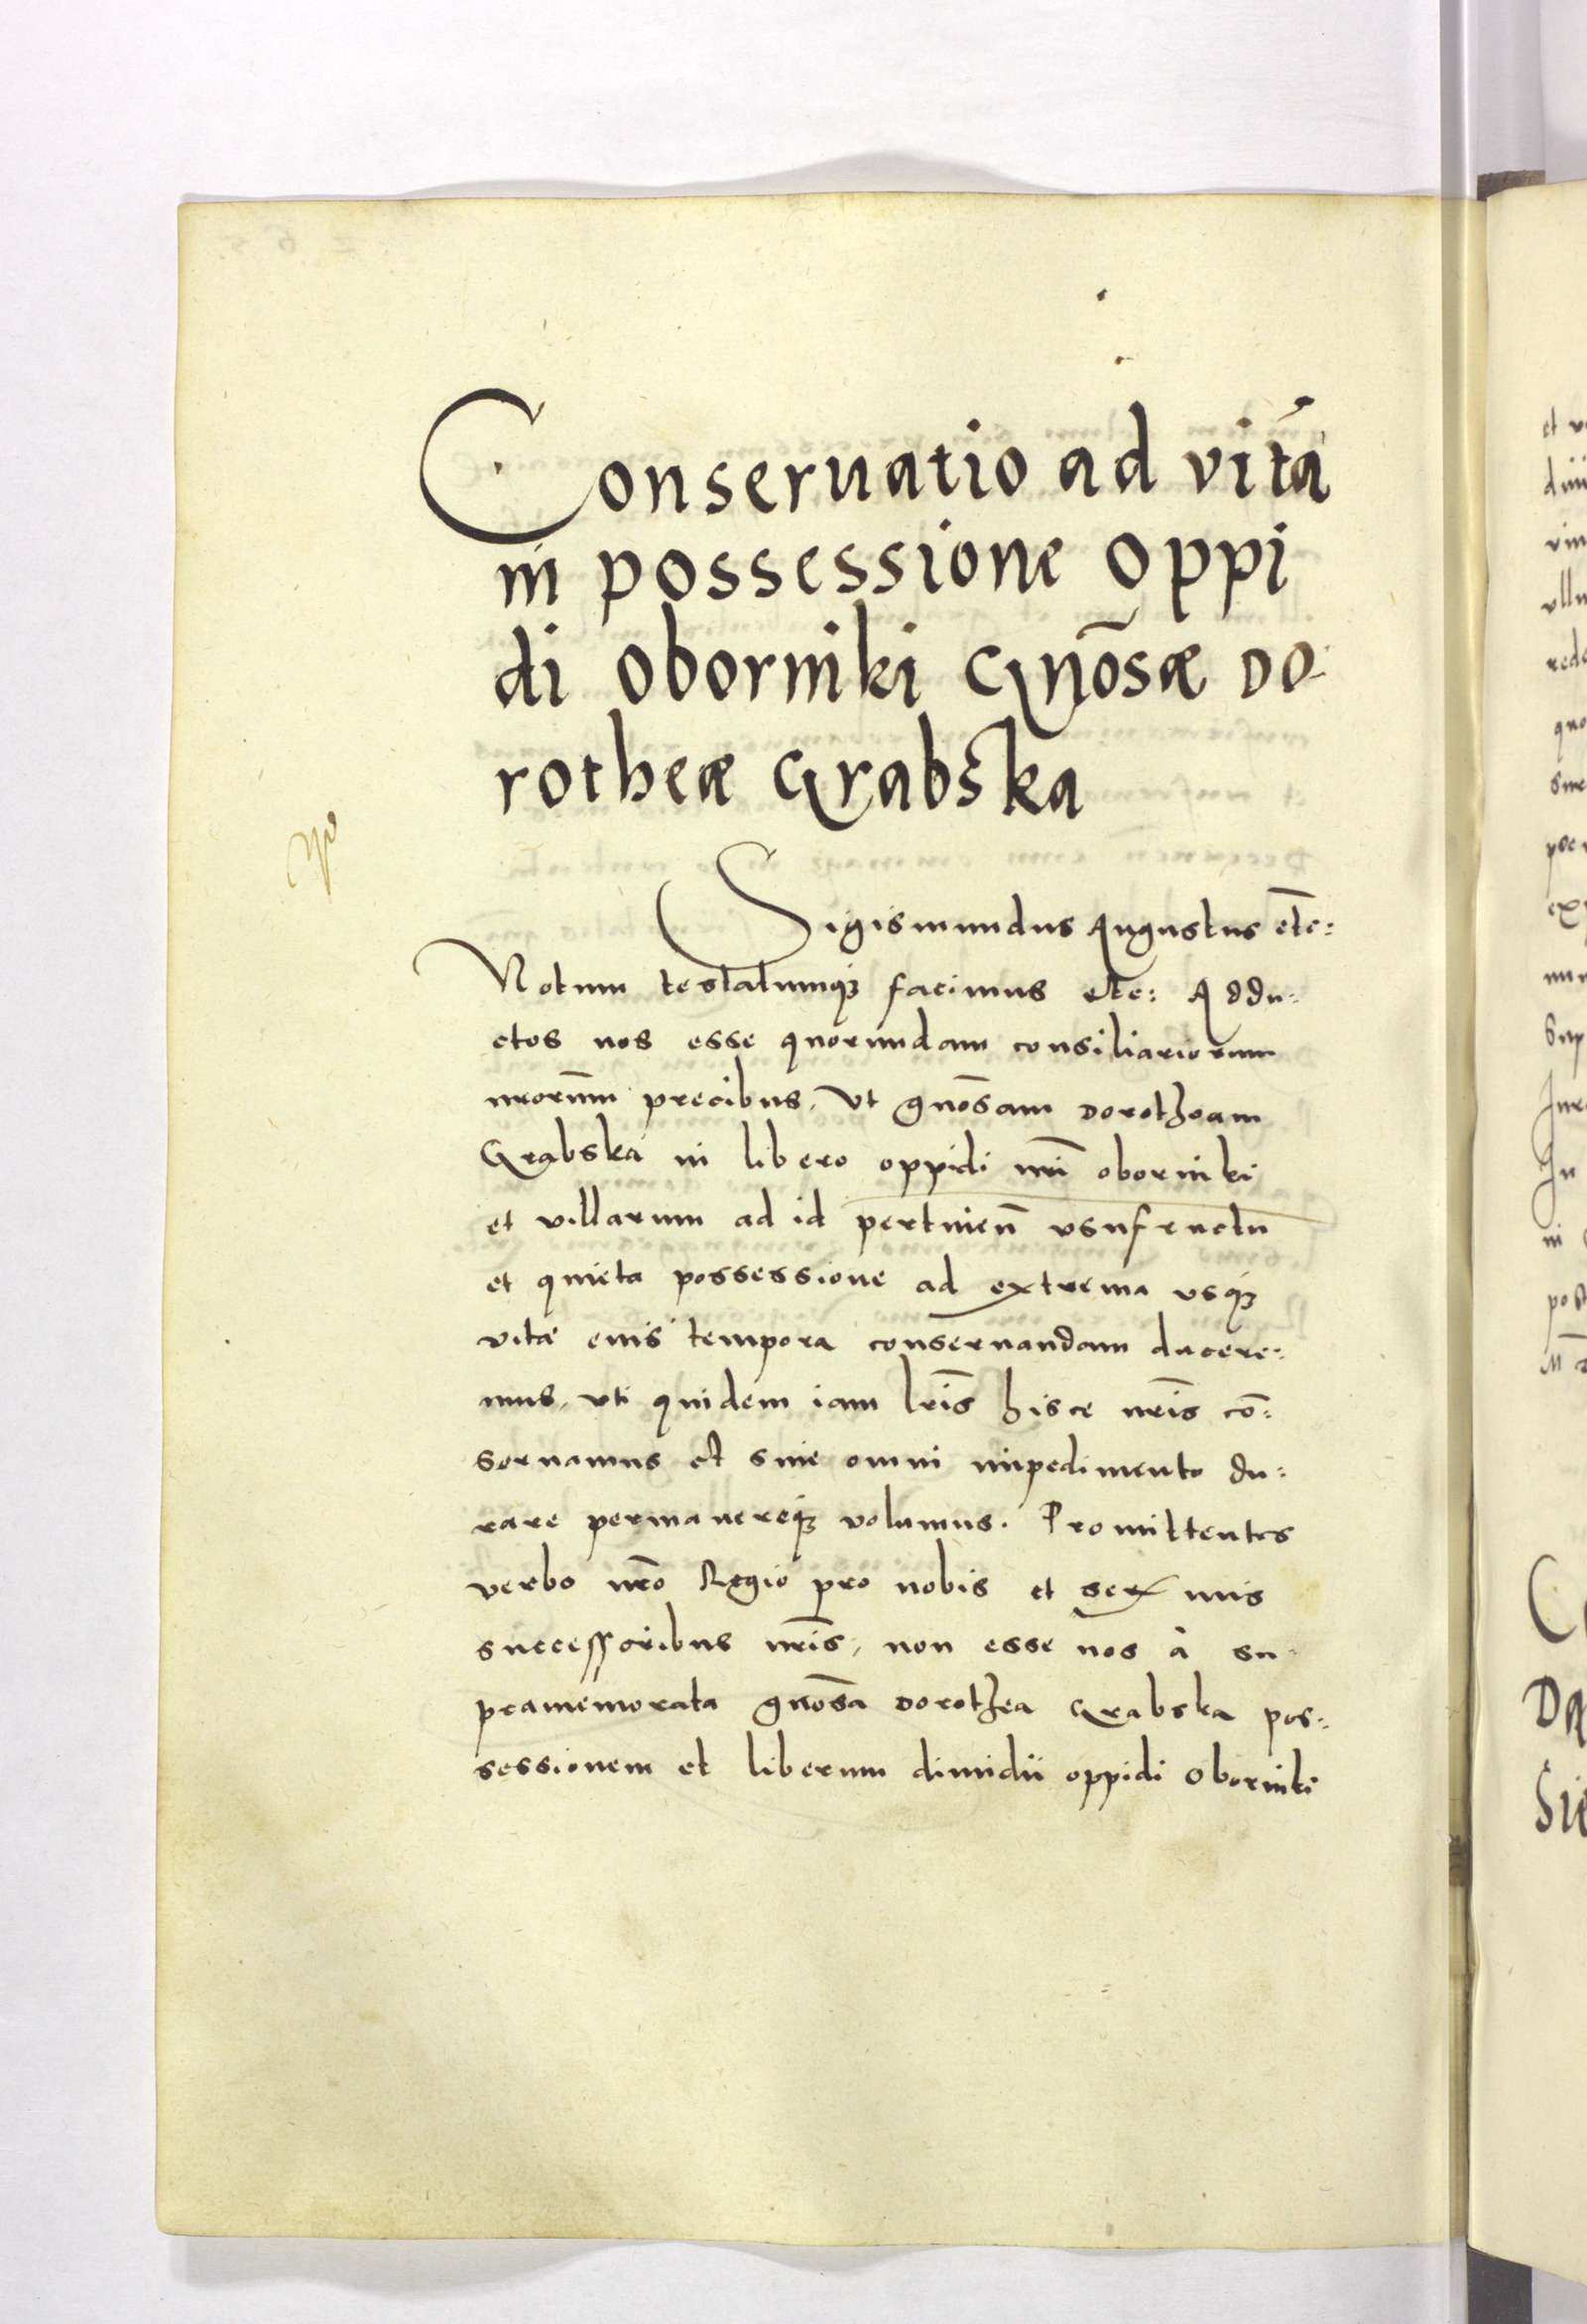 Conseruatio ad vitã
in possessione oppi
di oborniki Gnõsæ Do-
rotheæ Grabska
Sigismundus Augustus etc:
Notum testatumq3 facimus etc: Addu-
ctos nos esse quorundam consiliariorum
nrorum̃ precibus, Vt gnõsam Dorotheam
Grabska in libero oppidi nri̅ oborniki
et villarum ad id pertinen̅ vsufructu
et quieta possessione ad extrema vsq3
vitæ eius tempora conseruandam ducere:
mus, vti quidem iam lri̅s hisce nri̅s cõ:
seruamus et sine omni impedimento du:
rare permanereq3 volumus. Promittentes
verbo nr̅o Regio pro nobis et ser mis
successoribus nri̅s, non esse nos à su-
pramemorata gnõsa Dorothea Grabska pos:
sessionem et liberum dimidii oppidi Oborniki